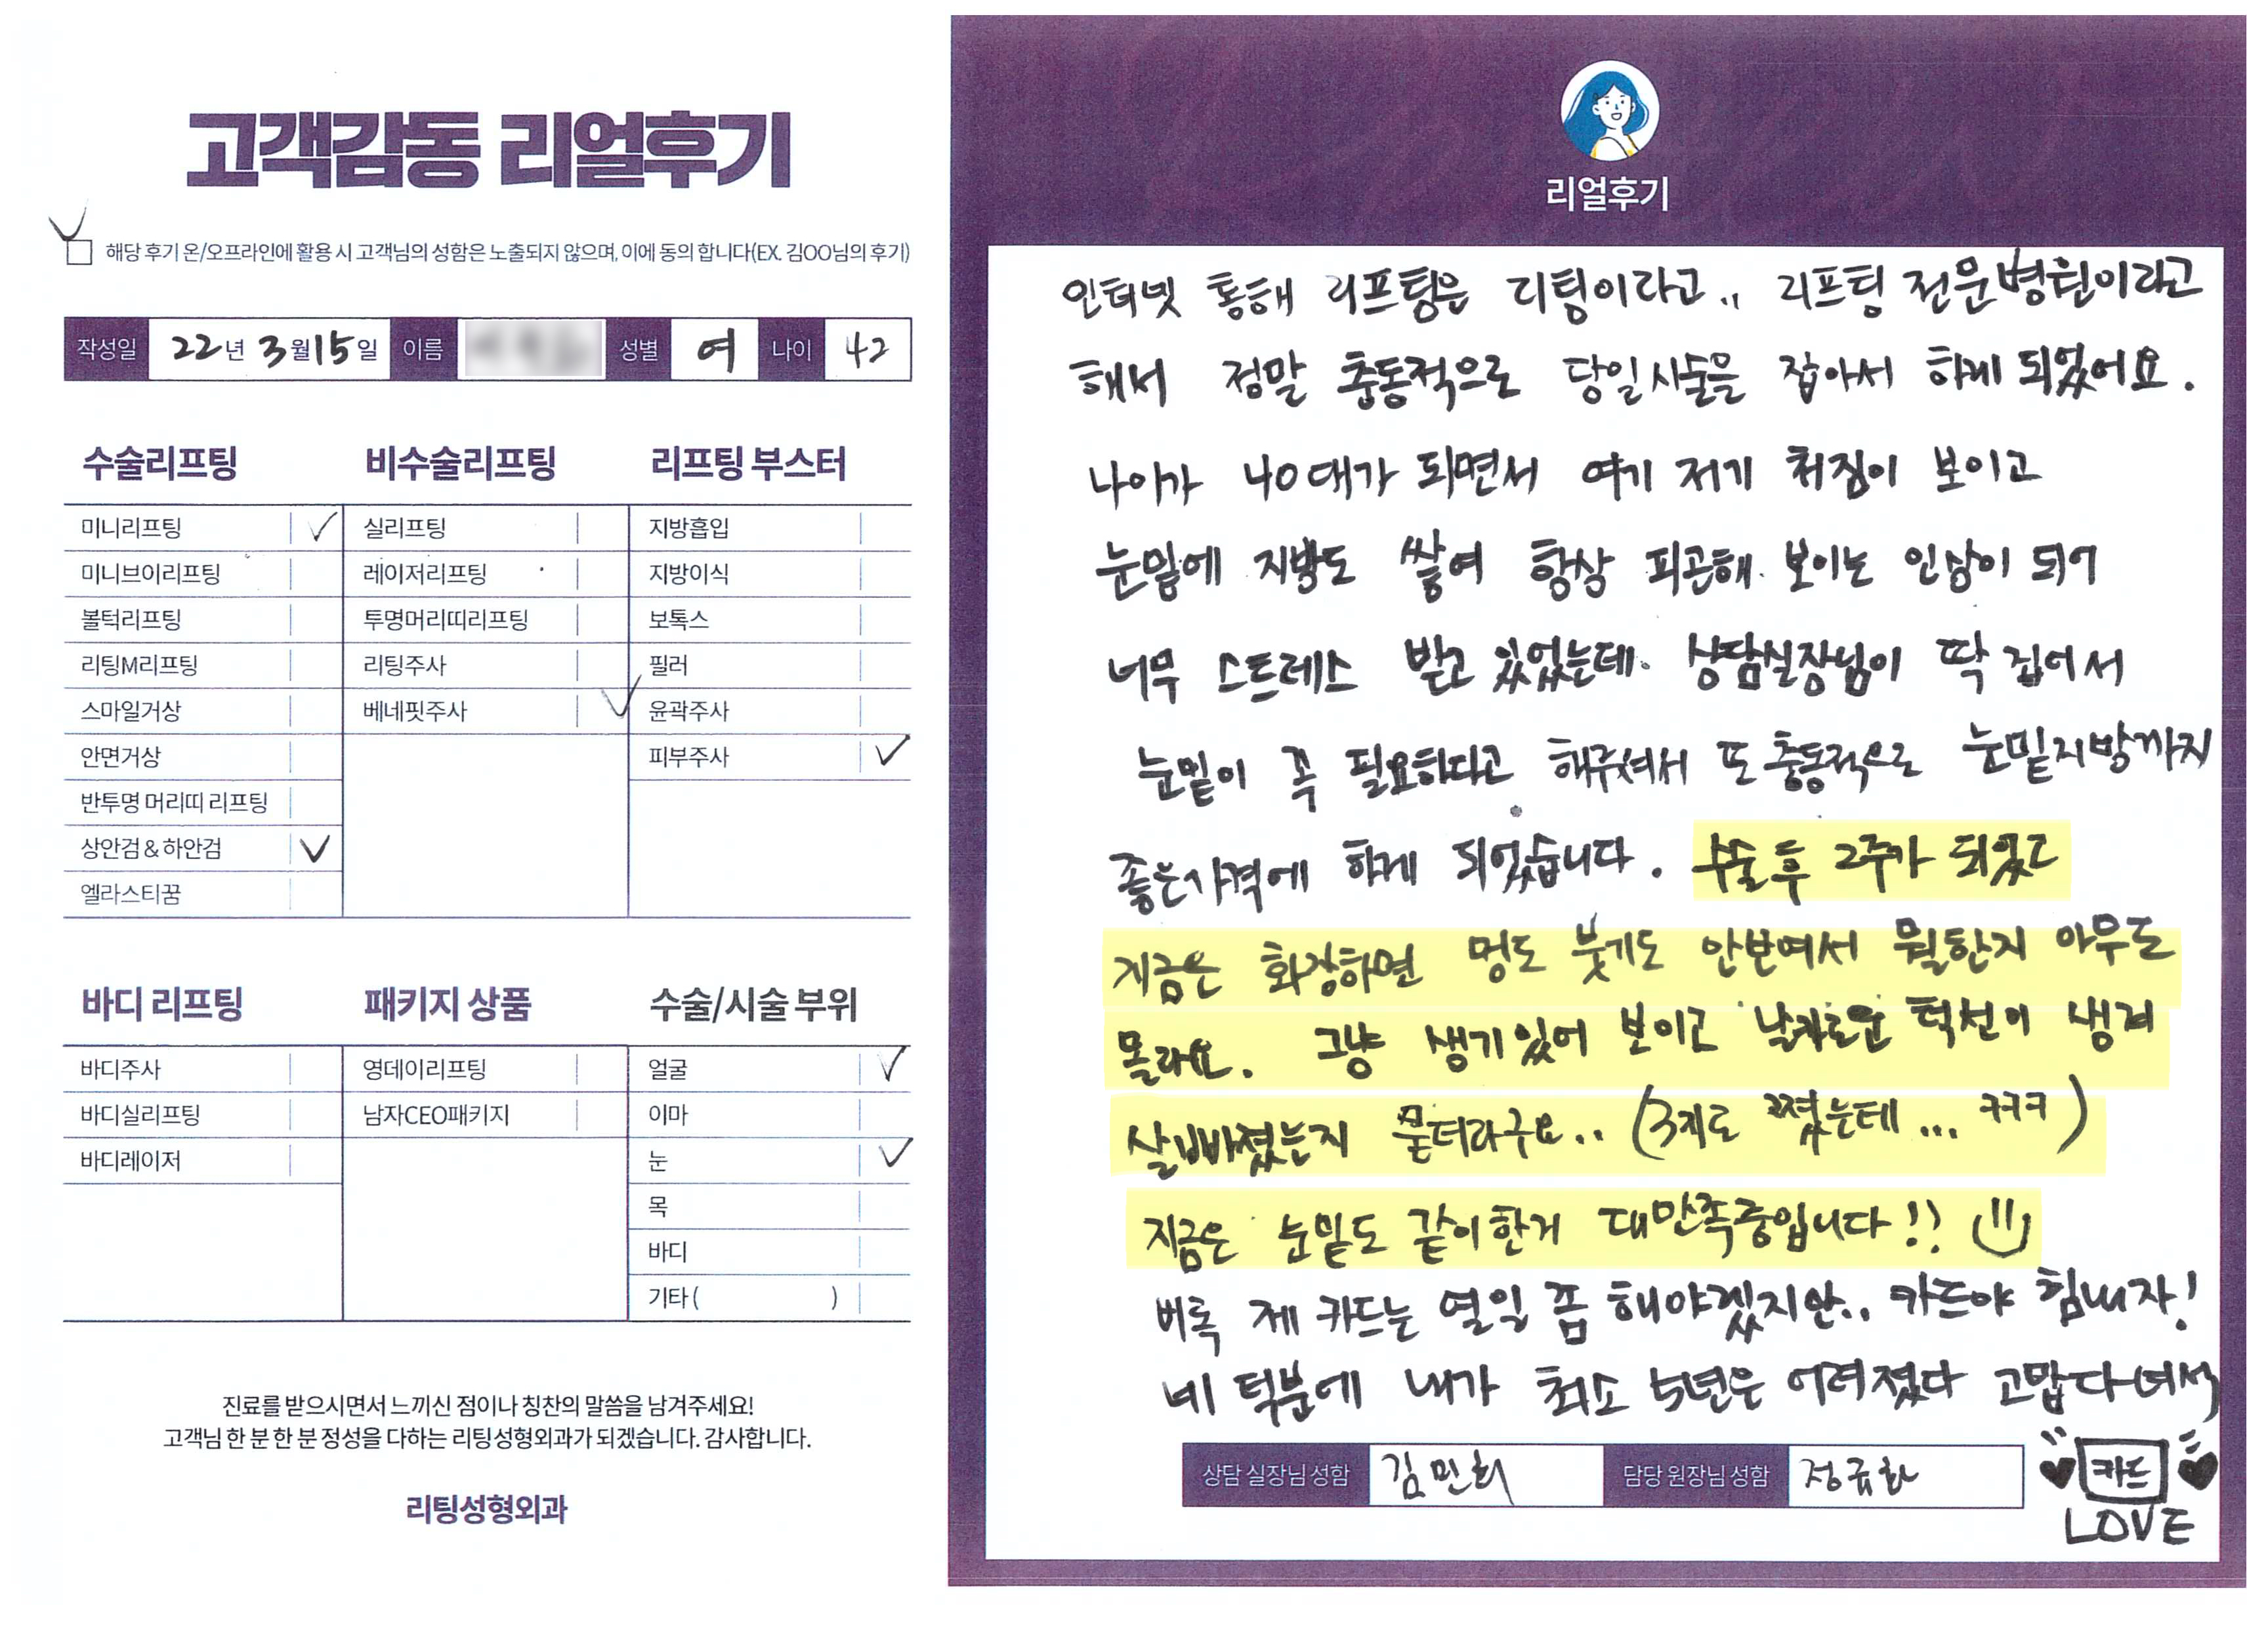 고객감동 리얼후기
해당 후기 온/오프라인에 활용 시 고객님의 성함은 노출되지 않으며, 이에 동의 합니다(EX. 김OO님의 후기)
작성일 22년 3월 15일 이름 성별 여 나이 42
수술리프팅
미니리프팅 ✓
미니브이리프팅
볼턱리프팅
리팅M리프팅
스마일거상
안면거상
반투명 머리띠 리프팅
상안검 & 하안검 ✓
엘라스티꿈
비수술리프팅
실리프팅
레이저리프팅
투명머리띠리프팅
리팅주사
베네핏주사 ✓
리프팅 부스터
지방흡입
지방이식
보톡스
필러
윤곽주사
피부주사 ✓
바디 리프팅
바디주사
바디실리프팅
바디레이저
패키지 상품
영데이리프팅
남자CEO패키지
수술/시술 부위
얼굴 ✓
이마
눈 ✓
목
바디
기타 ( )
진료를 받으시면서 느끼신 점이나 칭찬의 말씀을 남겨주세요!
고객님 한 분 한 분 정성을 다하는 리팅성형외과가 되겠습니다. 감사합니다.
리팅성형외과
리얼후기
인터넷 통해 리프팅은 리팅이라고.. 리프팅 전문병원이라고
해서 정말 충동적으로 당일시술을 잡아서 하게 되었어요.
나이가 40대가 되면서 여기 저기 처짐이 보이고
눈밑에 지방도 쌓여 항상 피곤해 보이는 인상이 되어
너무 스트레스 받고 있었는데. 상담실장님이 딱 집어서
눈밑이 꼭 필요하다고 해주셔서 또 충동적으로 눈밑지방까지
좋은가격에 하게 되었습니다. 수술 후 2주가 되었고
지금은 화장하면 멍도 붓기도 안보여서 뭘한지 아무도
몰라요. 그냥 생기있어 보이고 날카로운 턱선이 생겨
살빠졌는지 묻더라구요.. (3키로 쪘는데... ㅋㅋㅋ)
지금은 눈밑도 같이한거 대만족중입니다!!
비록 제 카드는 열일 좀 해야겠지만.. 카드야 힘내자!
네 덕분에 내가 최소 5년은 어려졌다 고맙다 녀석
상담 실장님 성함 김민희 담당 원장님 성함 정규화
카드
LOVE